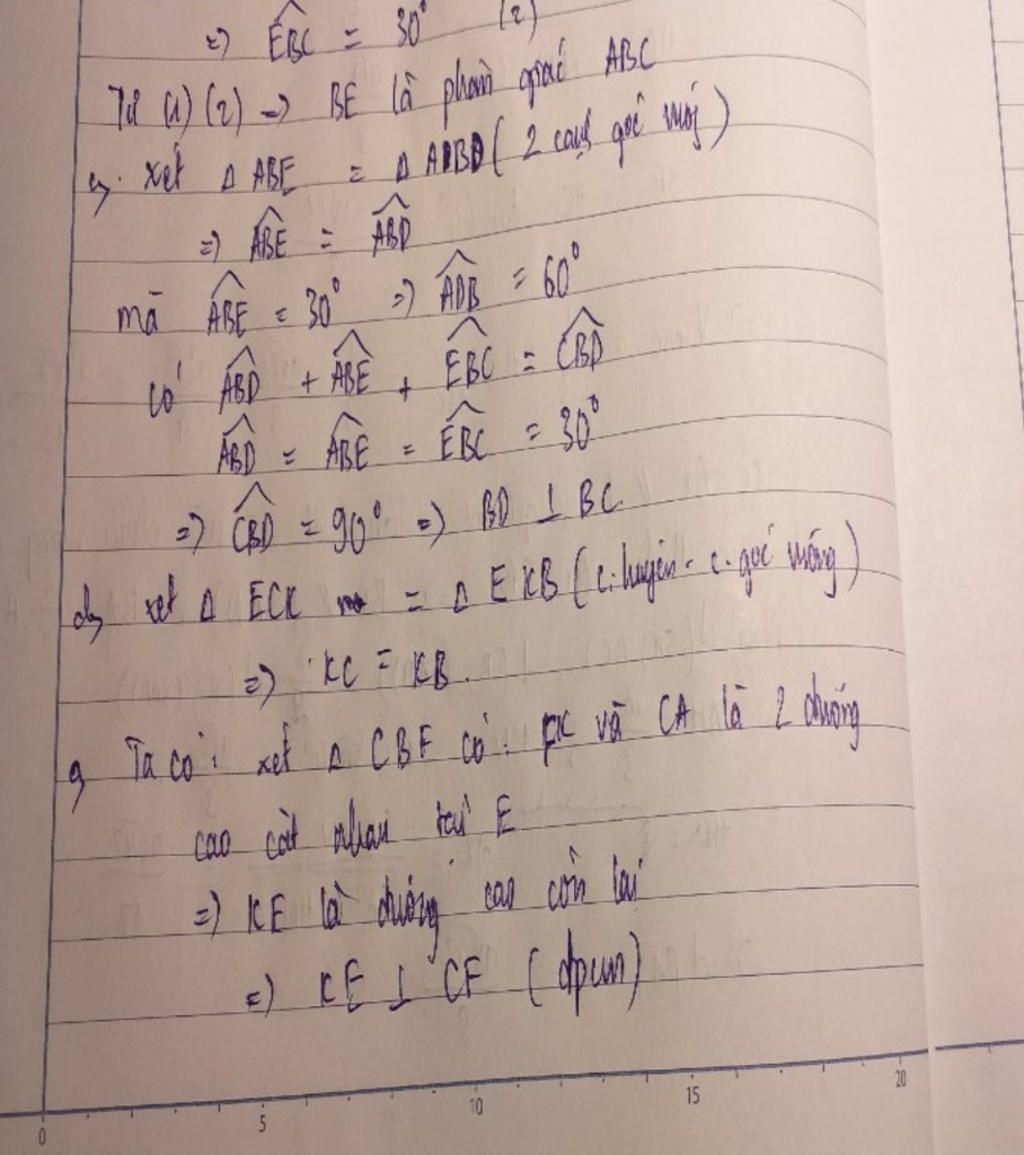 => EBC = 30° (2)
Từ (1) (2) => BE là phân giác ABC
c, xét Δ ABE = Δ ABD ( 2 cạnh góc vuông )
=> ABE = ABD
mà ABE = 30° => ADB = 60°
có ABD + ABE + EBC = CBD
ABD = ABE = EBC = 30°
=> CBD = 90° => BD ⊥ BC
d, xét Δ ECK = Δ EKB ( c.huyền - c.góc vuông )
=> KC = KB.
Ta có: xét Δ CBF có: FK và CA là 2 đường
cao cắt nhau tại E
=> KE là đường cao còn lại
=> KE ⊥ CF ( đpcm )
0 5 10 15 20